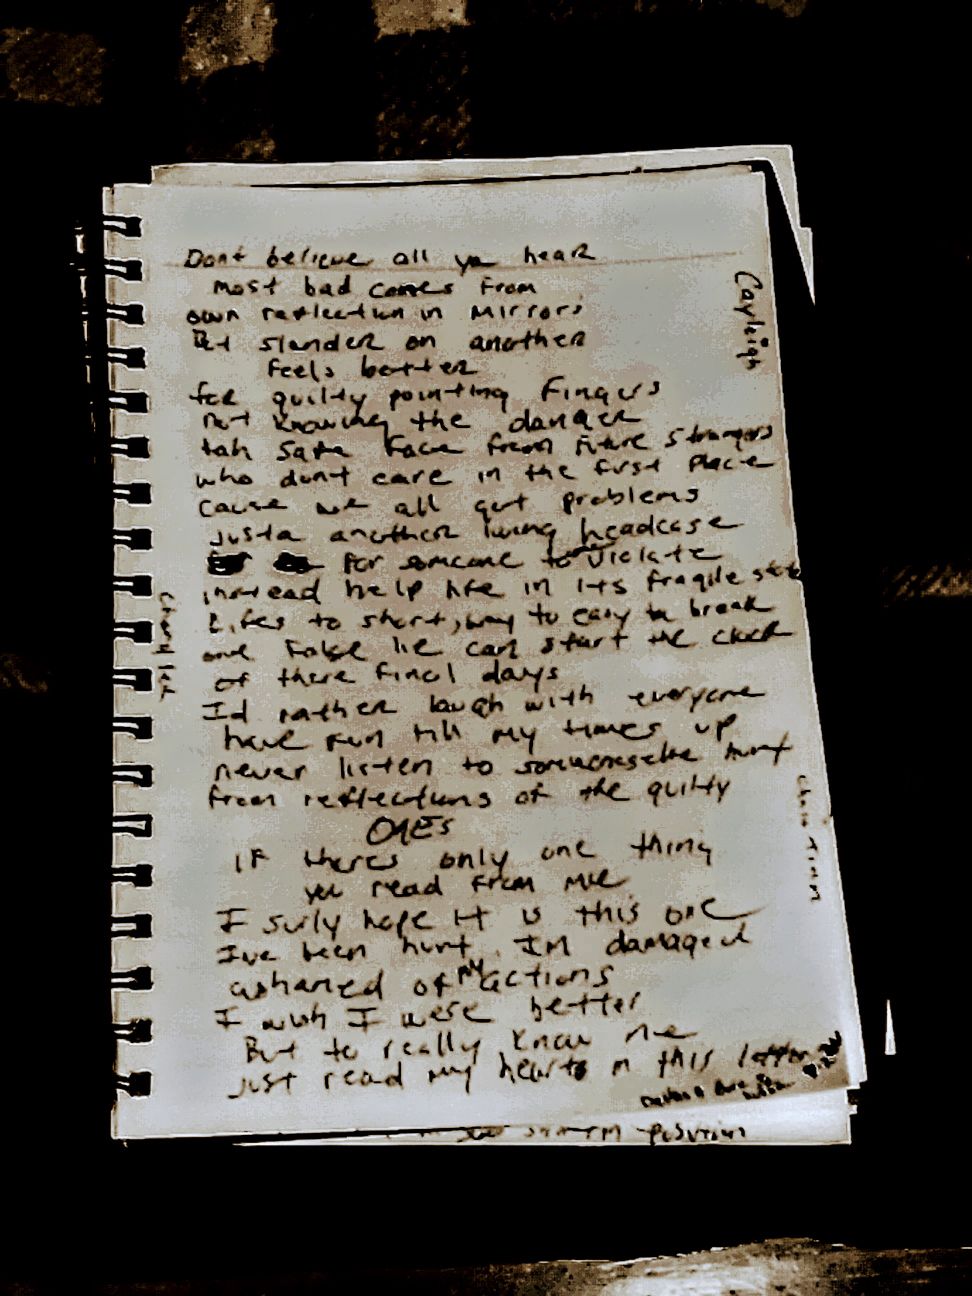 Dont believe all ya hear
most bad comes from
own reflection in mirrors
But slander on another
feels better
for guilty pointing Fingers
not knowing the danger
tah save face from future strangers
who dont care in the first place
cause we all got problems
justa another living headcase
for someone to violate
instead help life in its fragile state
Lifes to short, way to easy to break
one false lie can start the clock
of there final days
Id rather laugh with everyone
have fun till my times up
never listen to someoneselse hurt
from reflections of the guilty
ONES
IF theres only one thing
you read from me
I surly hope it is this one
Ive been hurt. IM damaged
ashamed of my actions
I wish I were better
But to really know me
just read my heart in this letter
position
Cayleigh